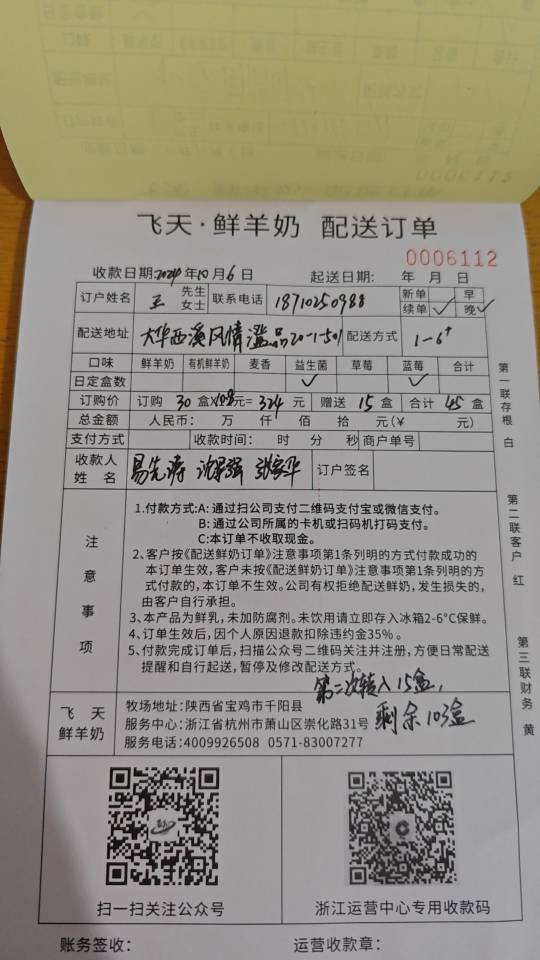 飞天·鲜羊奶 配送订单
0006112
收款日期:2024年10月6日 起送日期: 年 月 日
订户姓名 王 先生 女士 联系电话 18710250988 新单 早
续单 ✓ 晚 ✓
配送地址 大华西溪风情溢品20-1-501 配送方式 1-6
口味 鲜羊奶 有机鲜羊奶 麦香 益生菌 草莓 蓝莓 合计
日定盒数 ✓ ✓
订购价 订购 30 盒×10.8元= 324 元 赠送 15 盒 合计 45 盒
总金额 人民币: 万 仟 佰 拾 元(¥ 元)
支付方式 收款时间: 时 分 秒 商户单号
收款人姓名 易先涛 订户签名
注意事项
1.付款方式:A:通过扫公司支付二维码支付宝或微信支付。
B:通过公司所属的卡机或扫码机打码支付。
C:本订单不收取现金。
2、客户按《配送鲜奶订单》注意事项第1条列明的方式付款成功的
本订单生效,客户未按《配送鲜奶订单》注意事项第1条列明的方
式付款的,本订单不生效。公司有权拒绝配送鲜奶,发生损失的,
由客户自行承担。
3、本产品为鲜乳,未加防腐剂。未饮用请立即存入冰箱2-6°C保鲜。
4、订单生效后,因个人原因退款扣除违约金35%。
5、付款完成订单后,扫描公众号二维码关注并注册,方便日常配送
提醒和自行起送,暂停及修改配送方式。
第二次转入15盒,
剩余103盒
飞天
鲜羊奶
牧场地址:陕西省宝鸡市千阳县
服务中心:浙江省杭州市萧山区崇化路31号
服务电话:4009926508 0571-83007277
扫一扫关注公众号
浙江运营中心专用收款码
账务签收: 运营收款章:
第一联存根 白
第二联客户 红
第三联财务 黄